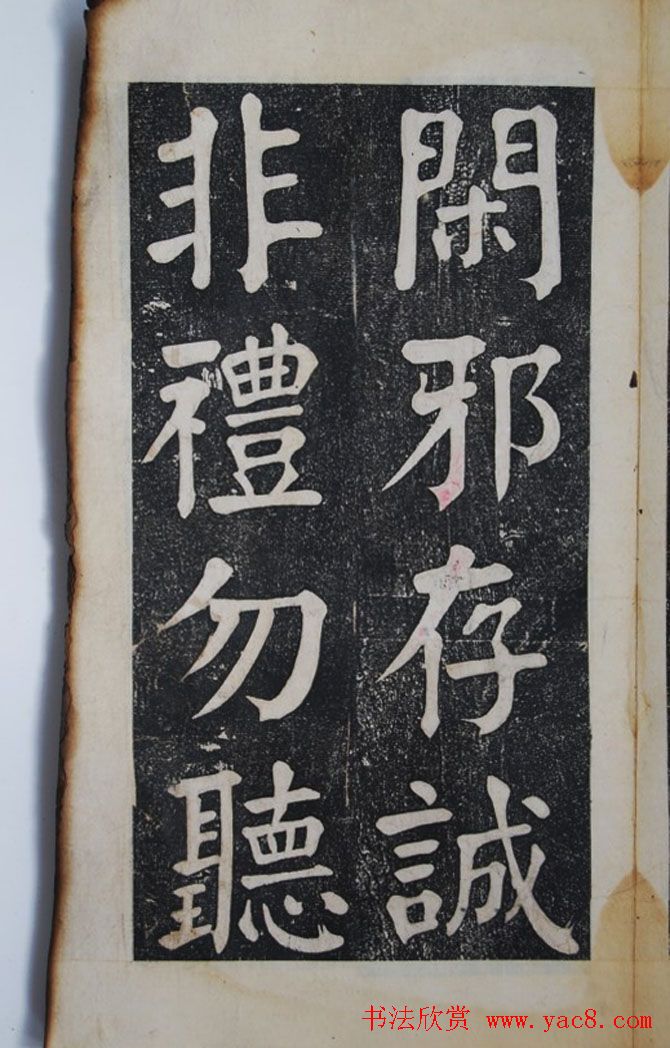 閑邪存誠
非禮勿聽
书法欣赏 www.yac8.com